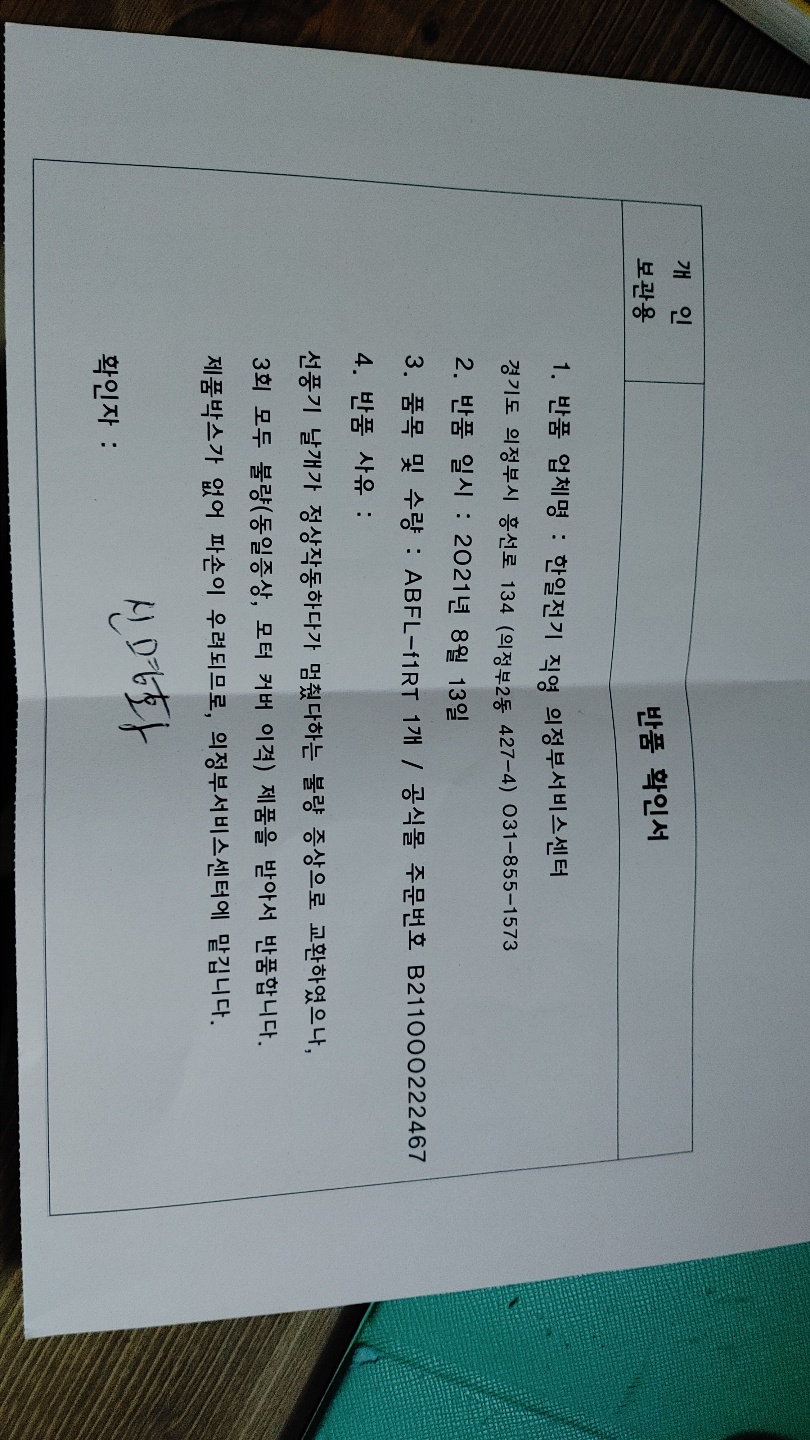 개 인
보관용
반품 확인서
1. 반품 업체명 : 한일전기 직영 의정부서비스센터
경기도 의정부시 흥선로 134 (의정부2동 427-4) 031-855-1573
2. 반품 일시 : 2021년 8월 13일
3. 품목 및 수량 : ABFL-f1RT 1개 / 공식몰 주문번호 B211000222467
4. 반품 사유 :
선풍기 날개가 정상작동하다가 멈췄다하는 불량 증상으로 교환하였으나,
3회 모두 불량(동일증상, 모터 커버 이격) 제품을 받아서 반품합니다.
제품박스가 없어 파손이 우려되므로, 의정부서비스센터에 맡깁니다.
확인자 :